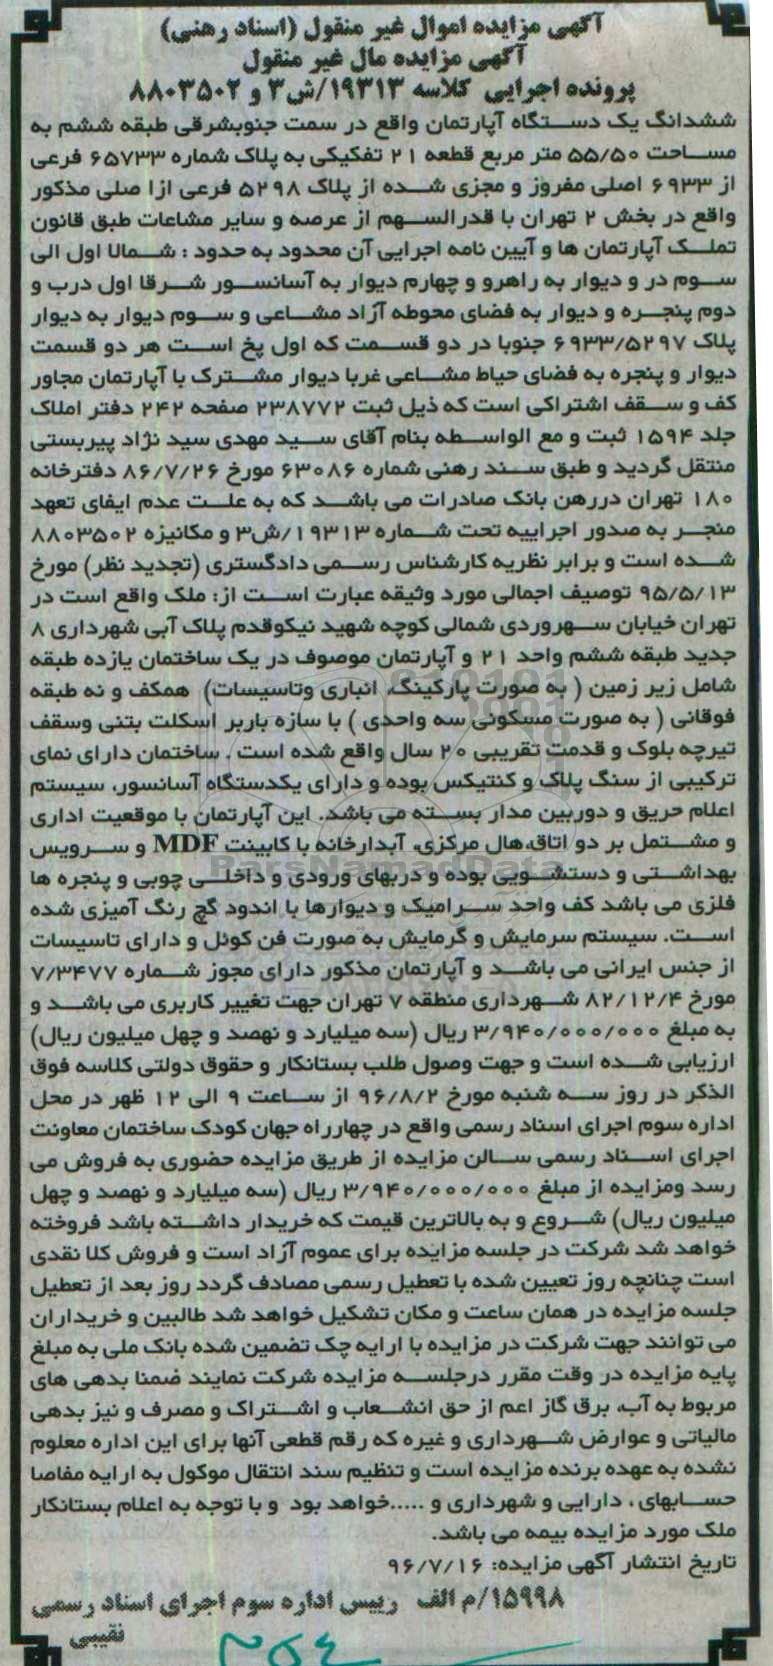 آگهی مزایده اموال غیر منقول (اسناد رهنی)
آگهی مزایده مال غیر منقول
پرونده اجرایی کلاسه ۱۹۳۱۳/ش۳ و ۸۸۰۳۵۰۲
ششدانگ یک دستگاه آپارتمان واقع در سمت جنوبشرقی طبقه ششم به
مساحت ۵۵/۵۰ متر مربع قطعه ۲۱ تفکیکی به پلاک شماره ۶۵۷۳۳ فرعی
از ۶۹۳۳ اصلی مفروز و مجزی شده از پلاک ۵۲۹۸ فرعی ازا صلی مذکور
واقع در بخش ۲ تهران با قدرالسهم از عرصه و سایر مشاعات طبق قانون
تملک آپارتمان ها و آیین نامه اجرایی آن محدود به حدود : شمالا اول الی
سوم در و دیوار به راهرو و چهارم دیوار به آسانسور شرقا اول درب و
دوم پنجره و دیوار به فضای محوطه آزاد مشاعی و سوم دیوار به دیوار
پلاک ۶۹۳۳/۵۲۹۷ جنوبا در دو قسمت که اول پخ است هر دو قسمت
دیوار و پنجره به فضای حیاط مشاعی غربا دیوار مشترک با آپارتمان مجاور
کف و سقف اشتراکی است که ذیل ثبت ۲۳۸۷۷۲ صفحه ۲۴۲ دفتر املاک
جلد ۱۵۹۴ ثبت و مع الواسطه بنام آقای سید مهدی سید نژاد پیربستی
منتقل گردید و طبق سند رهنی شماره ۶۳۰۸۶ مورخ ۸۶/۷/۲۶ دفترخانه
۱۸۰ تهران دررهن بانک صادرات می باشد که به علت عدم ایفای تعهد
منجر به صدور اجراییه تحت شماره ۱۹۳۱۳/ش۳ و مکانیزه ۸۸۰۳۵۰۲
شده است و برابر نظریه کارشناس رسمی دادگستری (تجدید نظر) مورخ
۹۵/۵/۱۳ توصیف اجمالی مورد وثیقه عبارت است از: ملک واقع است در
تهران خیابان سهروردی شمالی کوچه شهید نیکوقدم پلاک آبی شهرداری ۸
جدید طبقه ششم واحد ۲۱ و آپارتمان موصوف در یک ساختمان یازده طبقه
شامل زیر زمین ( به صورت پارکینگ، انباری وتاسیسات) همکف و نه طبقه
فوقانی ( به صورت مسکونی سه واحدی ) با سازه باربر اسکلت بتنی وسقف
تیرچه بلوک و قدمت تقریبی ۲۰ سال واقع شده است . ساختمان دارای نمای
ترکیبی از سنگ پلاک و کنتیکس بوده و دارای یکدستگاه آسانسور، سیستم
اعلام حریق و دوربین مدار بسته می باشد. این آپارتمان با موقعیت اداری
و مشتمل بر دو اتاق،هال مرکزی، آبدارخانه با کابینت MDF و سرویس
ParsNamadData
بهداشتی و دستشویی بوده و دربهای ورودی و داخلی چوبی و پنجره ها
فلزی می باشد کف واحد سرامیک و دیوارها با اندود گچ رنگ آمیزی شده
است. سیستم سرمایش و گرمایش به صورت فن کوئل و دارای تاسیسات
از جنس ایرانی می باشد و آپارتمان مذکور دارای مجوز شماره ۷/۳۴۷۷
مورخ ۸۲/۱۲/۴ شهرداری منطقه ۷ تهران جهت تغییر کاربری می باشد و
به مبلغ ۳/۹۴۰/۰۰۰/۰۰۰ ریال (سه میلیارد و نهصد و چهل میلیون ریال)
ارزیابی شده است و جهت وصول طلب بستانکار و حقوق دولتی کلاسه فوق
الذکر در روز سه شنبه مورخ ۹۶/۸/۲ از ساعت ۹ الی ۱۲ ظهر در محل
اداره سوم اجرای اسناد رسمی واقع در چهارراه جهان کودک ساختمان معاونت
اجرای اسناد رسمی سالن مزایده از طریق مزایده حضوری به فروش می
رسد ومزایده از مبلغ ۳/۹۴۰/۰۰۰/۰۰۰ ریال (سه میلیارد و نهصد و چهل
میلیون ریال) شروع و به بالاترین قیمت که خریدار داشته باشد فروخته
خواهد شد شرکت در جلسه مزایده برای عموم آزاد است و فروش کلا نقدی
است چنانچه روز تعیین شده با تعطیل رسمی مصادف گردد روز بعد از تعطیل
جلسه مزایده در همان ساعت و مکان تشکیل خواهد شد طالبین و خریداران
می توانند جهت شرکت در مزایده با ارایه چک تضمین شده بانک ملی به مبلغ
پایه مزایده در وقت مقرر درجلسه مزایده شرکت نمایند ضمنا بدهی های
مربوط به آب، برق گاز اعم از حق انشعاب و اشتراک و مصرف و نیز بدهی
مالیاتی و عوارض شهرداری و غیره که رقم قطعی آنها برای این اداره معلوم
نشده به عهده برنده مزایده است و تنظیم سند انتقال موکول به ارایه مفاصا
حسابهای ، دارایی و شهرداری و .....خواهد بود و با توجه به اعلام بستانکار
ملک مورد مزایده بیمه می باشد.
تاریخ انتشار آگهی مزایده: ۹۶/۷/۱۶
۱۵۹۹۸/م الف رییس اداره سوم اجرای اسناد رسمی
نقیبی